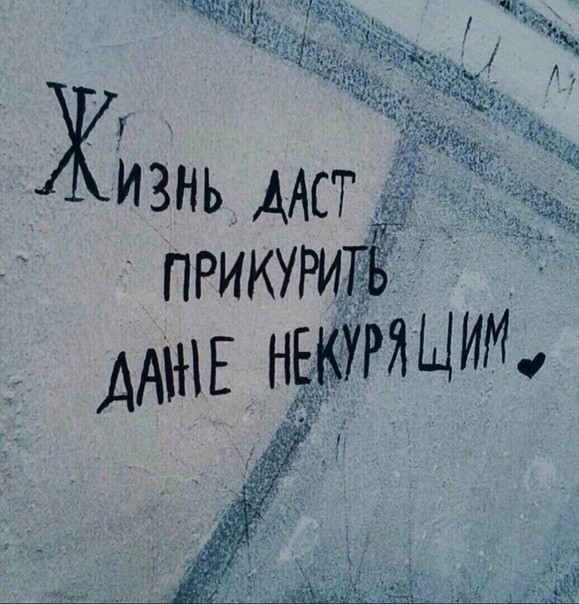 Жизнь ДАСТ
ПРИКУРИТЬ
ДАЖЕ НЕКУРЯЩИМ.